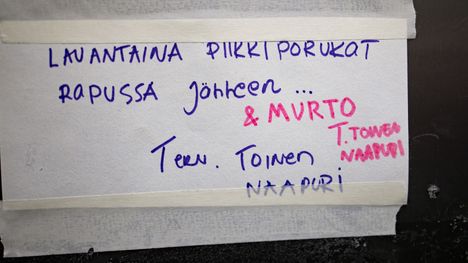 LAUANTAINA PIIKKIPORUKAT
RAPUSSA jölleen ...
& MURTO
T. TOINEN
NAAPURI
TERV. TOINEN
NAAPURI